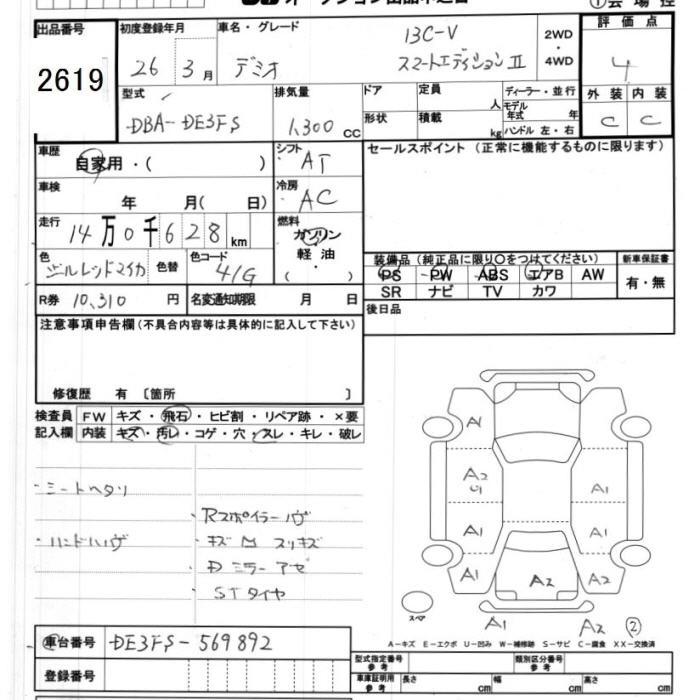 出品番号 初度登録年月 車名・グレード 評価点
2619 26年 3月 デミオ 13C-V スマートエディションⅡ 2WD・4WD 4
型式 排気量 ドア 定員 人 ディーラー・並行 外装 内装
DBA-DE3FS 1,300 CC 形状 積載 kg モデル年式 年 ハンドル 左・右 C C
車歴 自家用・( ) シフト AT セールスポイント (正常に機能するものに限ります)
車検 年 月( 日) 冷房 AC
走行 14万0千628 km 燃料 ガソリン 軽油 ・ ( )
色 色替 色コード 41G 装備品 (純正品に限り○をつけてください) 新車保証書
PS PW ABS エアB AW 有・無
SR ナビ TV カワ
R券 10,310 円 名変通知期限 月 日 後日品
注意事項申告欄(不具合内容等は具体的に記入して下さい)
修復歴 有 〔箇所 〕
検査員 FW キズ・飛石・ヒビ割・リペア跡・×要
記入欄 内装 キズ・汚レ・コゲ・穴・スレ・キレ・破レ
・シートヘタリ
・Rスポイラーハゲ
・ハンドハゲ ・キズ 凹 スリキズ
・ミラーアセ
・STタイヤ
A1
A2
U1
A1
A1
A1
A1
A2
A2
スペア
A1 A2 ②
A-キズ E-エクボ U-凹み W-補修跡 S-サビ C-腐食 XX-交換済
車台番号 DE3FS-569892
登録番号
型式指定番号 参考 類別区分番号 参考
車庫証明用 参考 長さ cm 幅 cm 高さ cm